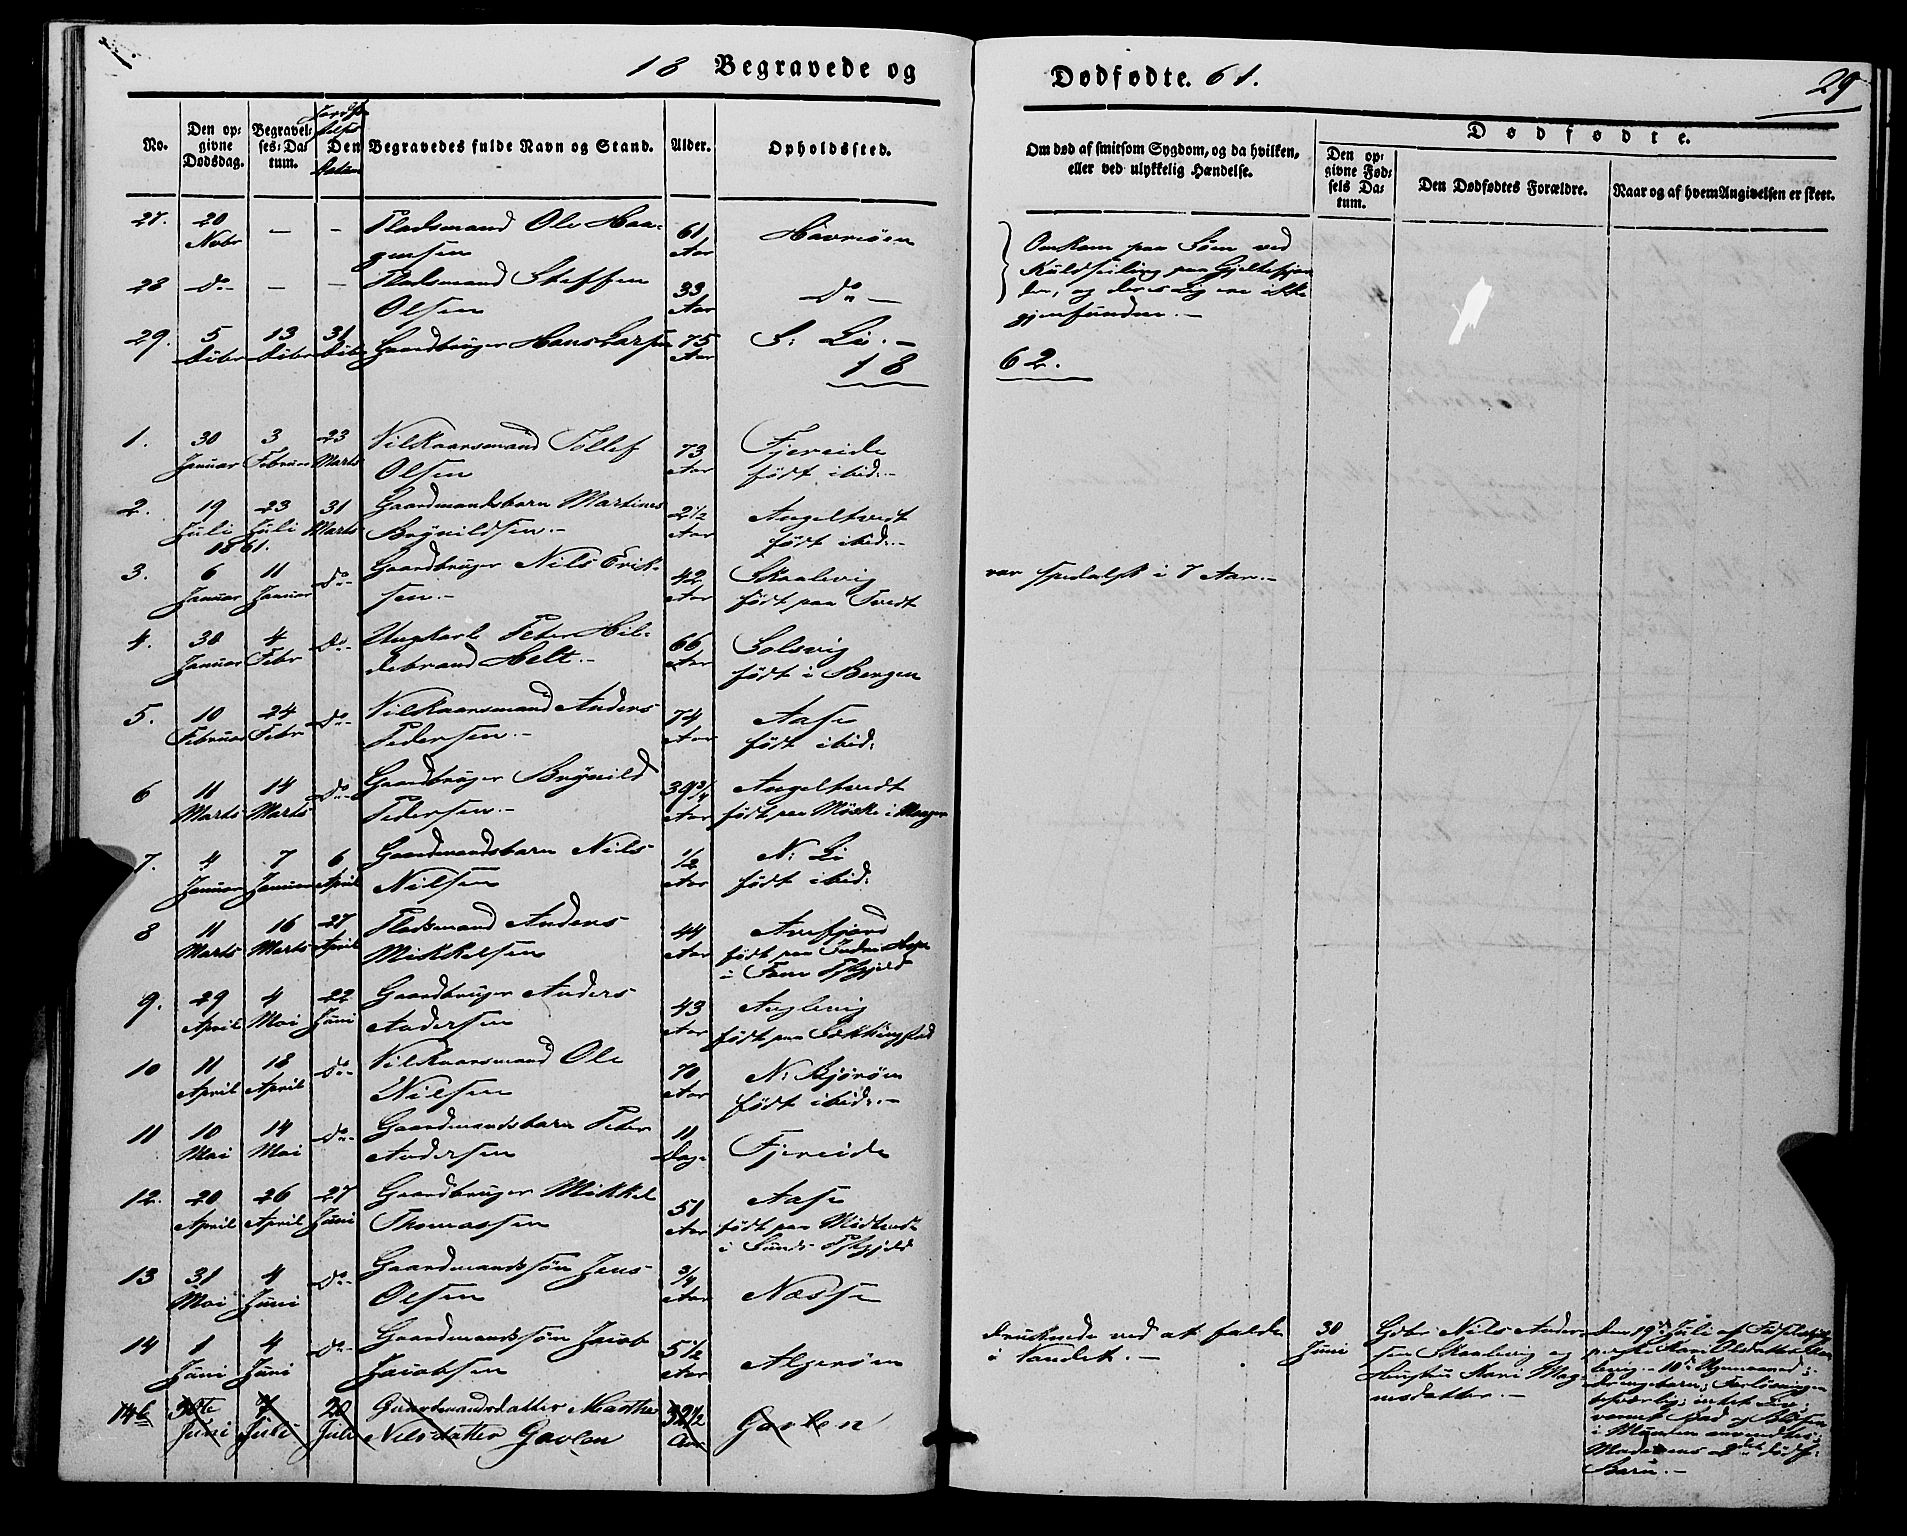 18 Begravede og Dødfødte. 61.
29
No.
Den op-
givne
Dødsdag.
Begravel-
ses-Da-
tum.
Den
Begravedes fulde Navn og Stand.
Alder.
Opholdssted.
Om død af smitsom Sygdom, og da hvilken,
eller ved ulykkelig Hændelse.
Dødfødte.
Den op-
givne Fød-
sels Da-
tum.
Den Dødfødtes Forældre.
Naar og af hvem Angivelsen er skeet.
27. 20 Novbr — — Pladsmand Ole Haa-
gensen 61 Aar Havrøen
Omkom paa Søen ved
Kuldseiling paa Hjeltefjor
den, og deres Lig ere ikke
gjenfunden.—
28 Do — — Pladsmand Steffen
Olsen 33 Aar Do —
29. 5 Decbr 13 Decbr 31 Decbr Gaardbruger Hans Larsen 75 Aar S: Li.—
18 62.
1. 30 Januar 3 Februar 23 Marts Vilkaarsmand Tollef
Olsen 73 Aar Fjereide
født ibid.—
2. 19 Juli 23 Juli 31 Marts Gaardmandsbarn Martines
Brynildsen.— 2½ Aar Angeltvedt
født ibid.—
1861.
3. 6 Januar 11 Januar Do Gaardbruger Nils Erik-
sen.— 42 Aar Skaalevig
født paa Tvedt
var spedalsk i 7 Aar.—
4. 30 Januar 4 Febr Do Ungkarl Peter Hil-
debrand Helt.— 66 Aar Solsvig
født i Bergen
5. 10 Februar 24 Febr Do Vilkaarsmand Anders
Pedersen.— 74 Aar Aase
født ibid:
6 11 Marts 14 Marts Do Gaardbruger Brynild
Pedersen.— 39¾ Aar Angeltvedt
født paa Møcke i Manger
7. 4 Januar 7 Januar 6 April Gaardmandsbarn Nils
Nilsen ½ Aar N: Li
født ibid:
8 11 Marts 16 Marts 27 April Pladsmand Anders
Mikkelsen 44 Aar Arefjord
født paa Indre
i Fane Pstgjeld
9. 29 April 4 Mai 22 Juni Gaardbruger Anders
Andersen 43 Aar Anglevig
født paa Sækkingstad
10 11 April 18 April Do Vilkaarsmand Ole
Nilsen 70 Aar N: Bjorøen
født ibid.—
11 10 Mai 14 Mai Do Gaardmandsbarn Peter
Andersen 11 Dage Fjereide
12. 20 April 26 April 27 Juni Gaardbruger Mikkel
Thomassen 51 Aar Aase
født paa
i Sunds Pstgjeld
13 31 Mai 4 Juni Do Gaardmandssøn Jens
Olsen ¾ Aar Næsse
14 1 Juni 4 Juni Do Gaardmandssøn Jacob
Jacobsen 5½ Aar Algerøen
druknede ved at falde
i Vandet.—
30 Juni
Gbr Nils Ander-
sen Skaalevig og
Hustru Kari Mag-
nesdatter.—
Den 19de Juli af Fødselshjel
perske Kari Olsdatter
levig. 10de
Drengebarn; Forløsningen
besværlig; intet Liv;
varmt Bad og Blæsen
i Munden anvendtes;
Moderens 2det dødf:
Barn.—
14b 30te Juni 7 Juli 20 Juli Gaardmandsdatter Martha
Nilsdatter Gavlen 32½ Aar Gavlen